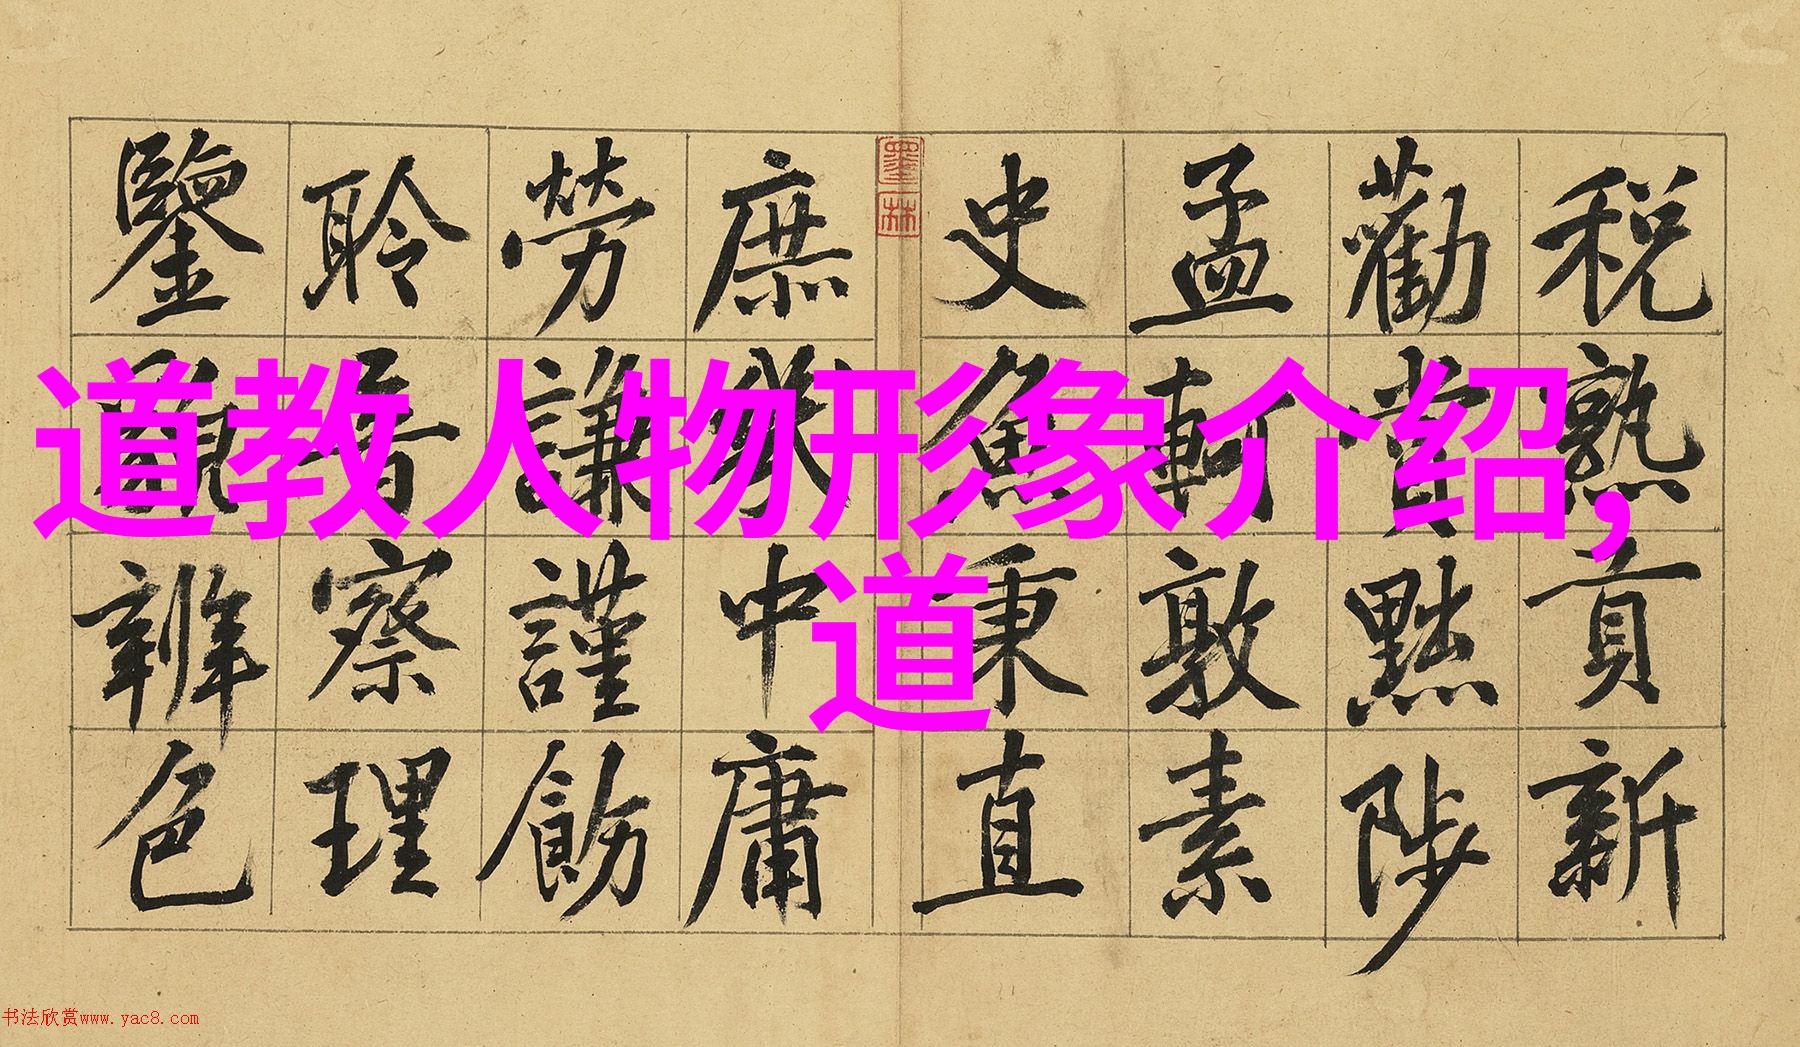 道教人物形象介绍,
道
稅熟貢新
勸賞黜陟
孟軻敦素
史魚秉直
墨林
庶幾中庸
勞謙謹飭
聆音察理
鑒貌辨色
书法欣赏www.yac8.com